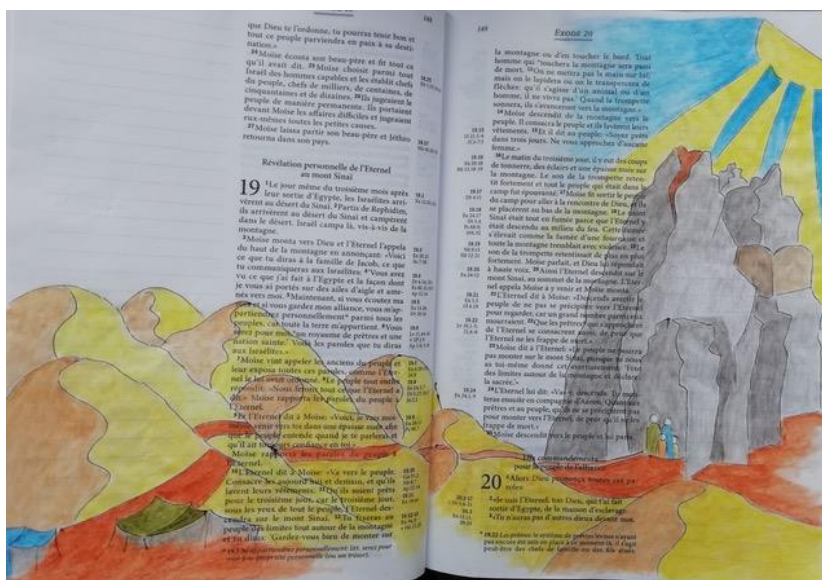 148
que Dieu te l'ordonne, tu pourras tenir bon et
tout ce peuple parviendra en paix à sa desti-
nation.»
24Moïse écouta son beau-père et fit tout ce
qu'il avait dit. 25Moïse choisit parmi tout
Israël des hommes capables et les établit chefs
du peuple, chefs de milliers, de centaines, de
cinquantaines et de dizaines. 26Ils jugeaient le
peuple de manière permanente. Ils portaient
devant Moïse les affaires difficiles et jugeaient
eux-mêmes toutes les petites causes.
27Moïse laissa partir son beau-père et Jéthro
retourna dans son pays.
Révélation personnelle de l'Eternel
au mont Sinaï
19 1Le jour même du troisième mois après
leur sortie d'Egypte, les Israélites arri-
vèrent au désert du Sinaï. 2Partis de Rephidim,
ils arrivèrent au désert du Sinaï et campèrent
dans le désert. Israël campa là, vis-à-vis de la
montagne.
3Moïse monta vers Dieu et l'Eternel l'appela
du haut de la montagne en annonçant: «Voici
ce que tu diras à la famille de Jacob, ce que
tu communiqueras aux Israélites: 4'Vous avez
vu ce que j'ai fait à l'Egypte et la façon dont
je vous ai portés sur des ailes d'aigle et ame-
nés vers moi. 5Maintenant, si vous écoutez ma
voix et si vous gardez mon alliance, vous m'ap-
partiendrez personnellement* parmi tous les
peuples, car toute la terre m'appartient. 6Vous
serez pour moi un royaume de prêtres et une
nation sainte.' Voilà les paroles que tu diras
aux Israélites.»
7Moïse vint appeler les anciens du peuple et
leur exposa toutes ces paroles, comme l'Eter-
nel le lui avait ordonné. 8Le peuple tout entier
répondit: «Nous ferons tout ce que l'Eternel a
dit.» Moïse rapporta les paroles du peuple à
l'Eternel.
9Et l'Eternel dit à Moïse: «Voici, je vais moi-
même venir vers toi dans une épaisse nuée afin
que le peuple entende quand je te parlerai et
qu'il ait toujours confiance en toi.»
Moïse rapporta les paroles du peuple à
l'Eternel.
10L'Eternel dit à Moïse: «Va vers le peuple.
Consacre-les aujourd'hui et demain, et qu'ils
lavent leurs vêtements. 11Qu'ils soient prêts
pour le troisième jour, car le troisième jour,
sous les yeux de tout le peuple, l'Eternel des-
cendra sur le mont Sinaï. 12Tu fixeras au
peuple des limites tout autour de la montagne
et tu diras: 'Gardez-vous bien de monter sur
149
EXODE 20
la montagne ou d'en toucher le bord. Tout
homme qui touchera la montagne sera puni
de mort. 13On ne mettra pas la main sur lui,
mais on le lapidera ou on le transpercera de
flèches: qu'il s'agisse d'un animal ou d'un
homme, il ne vivra pas.' Quand la trompette
sonnera, ils s'avanceront vers la montagne.»
14Moïse descendit de la montagne vers le
peuple. Il consacra le peuple et ils lavèrent leurs
vêtements. 15Et il dit au peuple: «Soyez prêts
dans trois jours. Ne vous approchez d'aucune
femme.»
16Le matin du troisième jour, il y eut des coups
de tonnerre, des éclairs et une épaisse nuée sur
la montagne. Le son de la trompette reten-
tit fortement et tout le peuple qui était dans le
camp fut épouvanté. 17Moïse fit sortir le peuple
du camp pour aller à la rencontre de Dieu, et ils
se placèrent au bas de la montagne. 18Le mont
Sinaï était tout en fumée parce que l'Eternel y
était descendu au milieu du feu. Cette fumée
s'élevait comme la fumée d'une fournaise et
toute la montagne tremblait avec violence. 19Le
son de la trompette retentissait de plus en plus
fortement. Moïse parlait, et Dieu lui répondait
à haute voix. 20Ainsi l'Eternel descendit sur le
mont Sinaï, au sommet de la montagne. L'Eter-
nel appela Moïse à y venir et Moïse monta.
21L'Eternel dit à Moïse: «Descends avertir le
peuple de ne pas se précipiter vers l'Eternel
pour regarder, car un grand nombre parmi eux
mourraient. 22Que les prêtres qui s'approchent
de l'Eternel se consacrent aussi, de peur que
l'Eternel ne les frappe de mort.»
23Moïse dit à l'Eternel: «Le peuple ne pourra
pas monter sur le mont Sinaï, puisque tu nous
as toi-même donné cet avertissement: 'Fixe
des limites autour de la montagne et déclare-
la sacrée.'»
24L'Eternel lui dit: «Vas-y, descends. Tu mon-
teras ensuite en compagnie d'Aaron. Quant aux
prêtres et au peuple, qu'ils ne se précipitent pas
pour monter vers l'Eternel, de peur qu'il ne les
frappe de mort.»
25Moïse descendit vers le peuple et lui parla.
Dix commandements
pour le peuple de l'alliance
20 1Alors Dieu prononça toutes ces pa-
roles:
2«Je suis l'Eternel, ton Dieu, qui t'ai fait
sortir d'Egypte, de la maison d'esclavage.
3»Tu n'auras pas d'autres dieux devant moi.